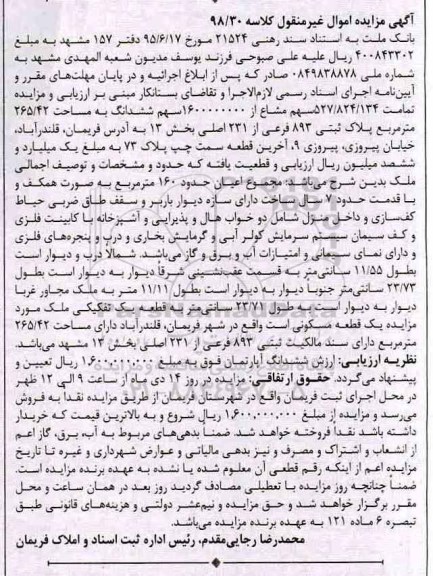 آگهی مزایده اموال غیرمنقول کلاسه ۹۸/۳۰
بانک ملت به استناد سند رهنی ۲۱۵۲۴ مورخ ۹۵/۶/۱۷ دفتر ۱۵۷ مشهد به مبلغ
۴۰۰۸۴۳۳۰۲ ریال علیه علی صبوحی فرزند یوسف مدیون شعبه المهدی مشهد به
شماره ملی ۰۸۴۹۸۳۸۸۷۸ صادر که پس از ابلاغ اجرائیه و در پایان مهلت‌های مقرر و
آیین‌نامه اجرای اسناد رسمی لازم‌الاجرا و تقاضای بستانکار مبنی بر ارزیابی و مزایده
تمامت ۵۲۷/۸۲۴/۱۳۴سهم مشاع از ۱۶۰۰۰۰۰۰۰۰سهم ششدانگ به مساحت ۲۶۵/۴۲
مترمربع پلاک ثبتی ۸۹۳ فرعی از ۲۳۱ اصلی بخش ۱۳ به آدرس فریمان، قلندرآباد،
خیابان پیروزی، پیروزی ۹، آخرین قطعه سمت چپ پلاک ۷۳ به مبلغ یک میلیارد و
ششصد میلیون ریال ارزیابی و قطعیت یافته که حدود و مشخصات و توصیف اجمالی
ملک بدین شرح می‌باشد مجموع اعیان حدود ۱۶۰ مترمربع به صورت همکف و
با قدمت حدود ۷ سال ساخت دارای سازه دیوار باربر و سقف طاق ضربی حیاط
کف‌سازی و داخل منزل شامل دو خواب هال و پذیرایی و آشپزخانه با کابینت فلزی
و کف سیمان سیستم سرمایش کولر آبی و گرمایش بخاری و درب و پنجره‌های فلزی
و دارای نمای سیمانی و امتیازات آب و برق و گاز می‌باشد. شمالاً درب و دیوار است
بطول ۱۱/۵۵ سانتی‌متر به قسمت عقب‌نشینی شرقاً دیوار به دیوار است بطول
۲۳/۷۳ سانتی‌متر جنوباً دیوار به دیوار است بطول ۱۱/۱۱ متر به ملک مجاور غربا
دیوار به دیوار است به طول ۲۳/۷۱ سانتی‌متر به قطعه یک تفکیکی ملک مورد
مزایده یک قطعه مسکونی است واقع در شهر فریمان، قلندرآباد دارای مساحت ۲۶۵/۴۲
مترمربع دارای سند مالکیت ثبتی ۸۹۳ فرعی از ۲۳۱ اصلی بخش ۱۳ مشهد می‌باشد.
نظریه ارزیابی: ارزش ششدانگ آپارتمان فوق به مبلغ ۱.۶۰۰.۰۰۰.۰۰۰ ریال تعیین و
پیشنهاد می‌گردد. حقوق ارتفاقی: مزایده در روز ۱۴ دی ماه از ساعت ۹ الی ۱۲ ظهر
در محل اجرای ثبت فریمان واقع در شهرستان فریمان از طریق مزایده نقداً به فروش
می‌رسد و مزایده از مبلغ ۱,۶۰۰,۰۰۰,۰۰۰ ریال شروع و به بالاترین قیمت که خریدار
داشته باشد نقداً فروخته خواهد شد. ضمناً بدهی‌های مربوط به آب، برق، گاز اعم
از انشعاب و اشتراک و مصرف و نیز بدهی مالیاتی و عوارض شهرداری و غیره تا تاریخ
مزایده اعم از اینکه رقم قطعی آن معلوم شده یا نشده به عهده برنده مزایده است.
ضمناً چنانچه روز مزایده با تعطیلی مصادف گردید روز بعد در همان ساعت و محل
مقرر برگزار خواهد شد و حق مزایده و نیم‌عشر دولتی و هزینه‌های قانونی طبق
تبصره ۶ ماده ۱۲۱ به عهده برنده مزایده می‌باشد.
محمدرضا رجایی‌مقدم، رئیس اداره ثبت اسناد و املاک فریمان